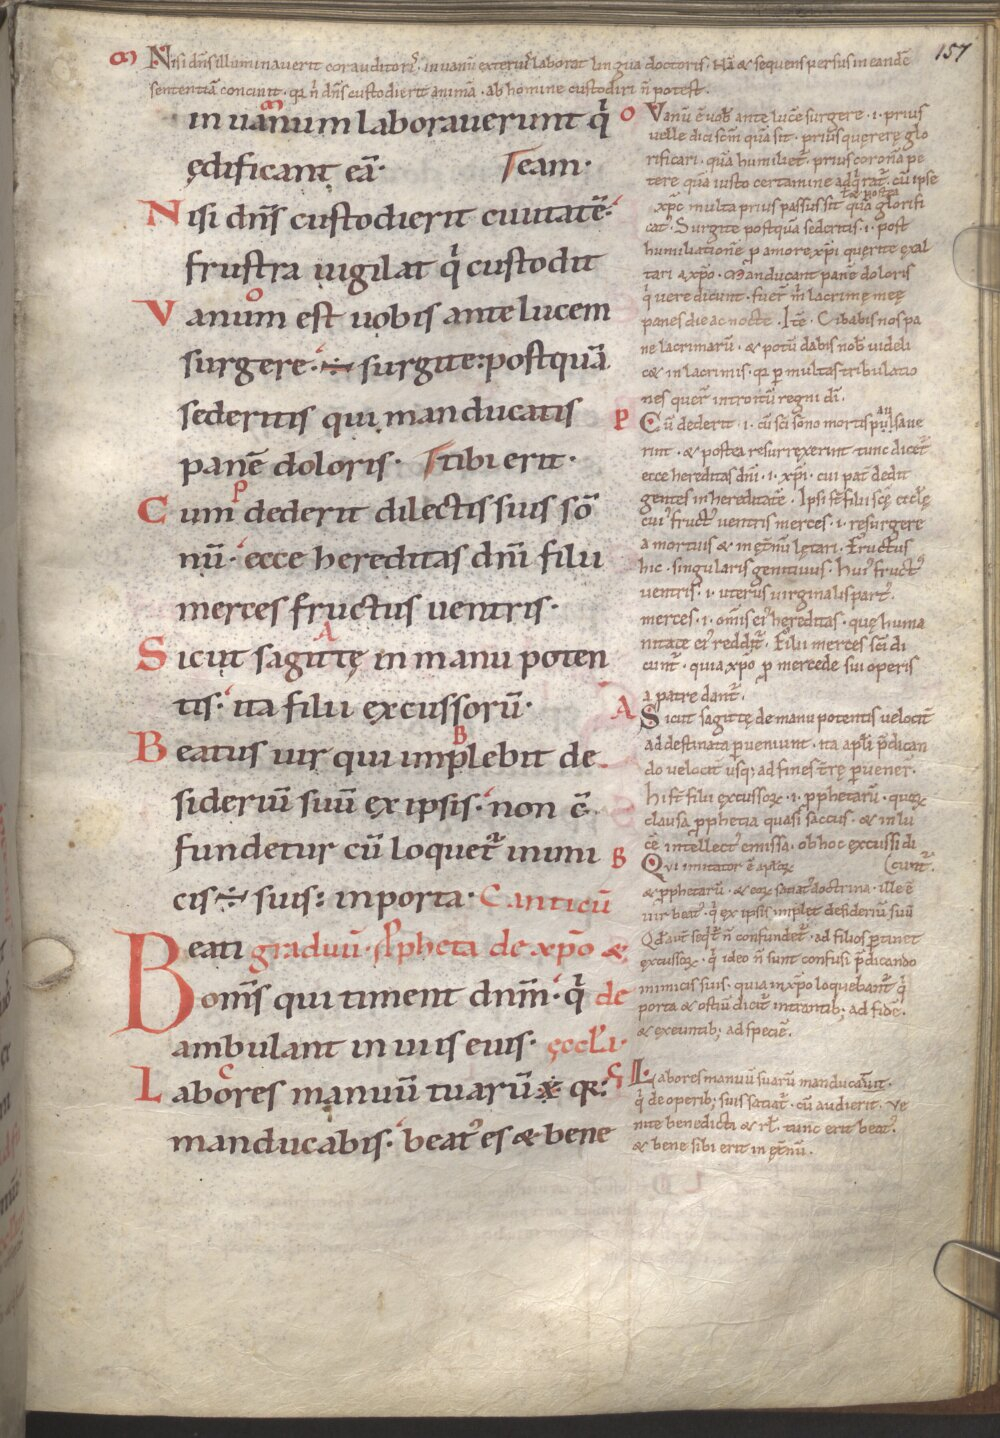 157
M Nisi dn̄s illuminauerit cor auditoris. in uanū exteriꝰ laborat lingua doctoris. Nā & sequens uersus in eandē
sententiā concinit. qꝛ n̄ dn̄s custodierit animā. ab homine custodiri n̄ potest.
in uanum laborauerunt q̇
ędificant eā· Γeam·
Nisi dn̄s custodierit ciuitatē·
frustra uigilat q̇ custodit
Vanum est uobis ante lucem
surgere· ÷ surgite: postquā
sederitis qui manducatis
panē doloris· Γtibi erit·
Cum dederit dilectis suis sō
nū· ecce hereditas dnī filii
merces fructus uentris·
Sicut sagittę in manu poten
tis· ita filii excussorū·
Beatus uir qui implebit de
sideriū suū ex ipsis· non c̄
fundetur cū loquet̄ inimi
cis ÷ suis: in porta· Canticū
Beati graduū· ꝓpheta de xp̄o &
oms̄ qui timent dnm̄· q̇ de
ambulant in uiis eius· ęcclͥ·
Labores manuū tuarū qꝛ:
manducabis· beatꝰ es & bene
O Vanū ē uob̄ ante lucē surgere· i· prius
uelle dici scm̄ quā sit· prius querere glo
rificari· quā humiliet̄· prius coronā pe
tere quā iusto certamine adq̇rat̄· cū ipse
xp̄c multa prius passus sit & postea quā glorifi
cat̄· Surgite postquā sederitis· i· post
humiliationē p amore xp̄i querite exal
tari a xp̄o· Manducant panē doloris
q̇ uere dicunt· fuer̄ m̄ lacrimę meę
panes die ac nocte· Itē· Cibabis nos pa
ne lacrimarū· & potū dabis nob̄ uideli
c& in lacrimis· qꝛ p multas tribulatio
nes quer̄ introitū regni dī·
P Cū dederit· i· cū sc̄i sōno mortis pausaue
rint· & postea resurrexerint tunc dicet̄
ecce hereditas dnī· i· xp̄i· cui pat̄ dedit
gentes in hereditatē· Ipsi st̄ filii scę ecclę
cuiꝰ fructꝰ uentris merces· i· resurgere
a mortuis & in ęt̄nū lętari· Fructus
hic· singularis genitiuus· huiꝰ fructꝰ
uentris· i· uterus uirginalis partꝰ·
merces· i· omīs eiꝰ hereditas· quę huma
nitate eiꝰ reddit̄· Filii merces sc̄i di
cunt̄· quia xp̄o p mercede sui operis
a patre dant̄·
A Sicut sagittę de manu potentis uelocit̄
ad destinata pueniunt· ita apl̄i p̄dican
do uelocit̄ usq; ad fines t̄rę puener̄·
hi st̄ filii excussoꝝ· i· ꝓphetarū· quoꝝ
clausa ꝓphetia quasi saccus· & in lu
cē intellectꝰ emissa· ob hoc excussi di
B Qui imitator ē ap̄loꝝ (cunt̄·
& ꝓphetarū· & eoꝝ satiatꝰ doctrina· ille ē
uir beatꝰ· q̇ ex ipsis implet desideriū suū
Qd̄ aut̄ seqt̄ n̄ confundet̄· ad filios ptinet
excussoꝝ· q̇ ideo n̄ sunt confusi p̄dicando
inimicis suis· quia in xp̄o loquebant̄ q̇
porta & ostiū dicit̄ intrantib; ad fidē·
& exeuntib; ad speciē·
C Labores manuū suarū manducauit·
q̇ de operib; suis satiat̄· cū audierit· Ve
nite benedicti & rl̄· tunc erit beatꝰ·
& bene sibi erit in ęt̄nū·